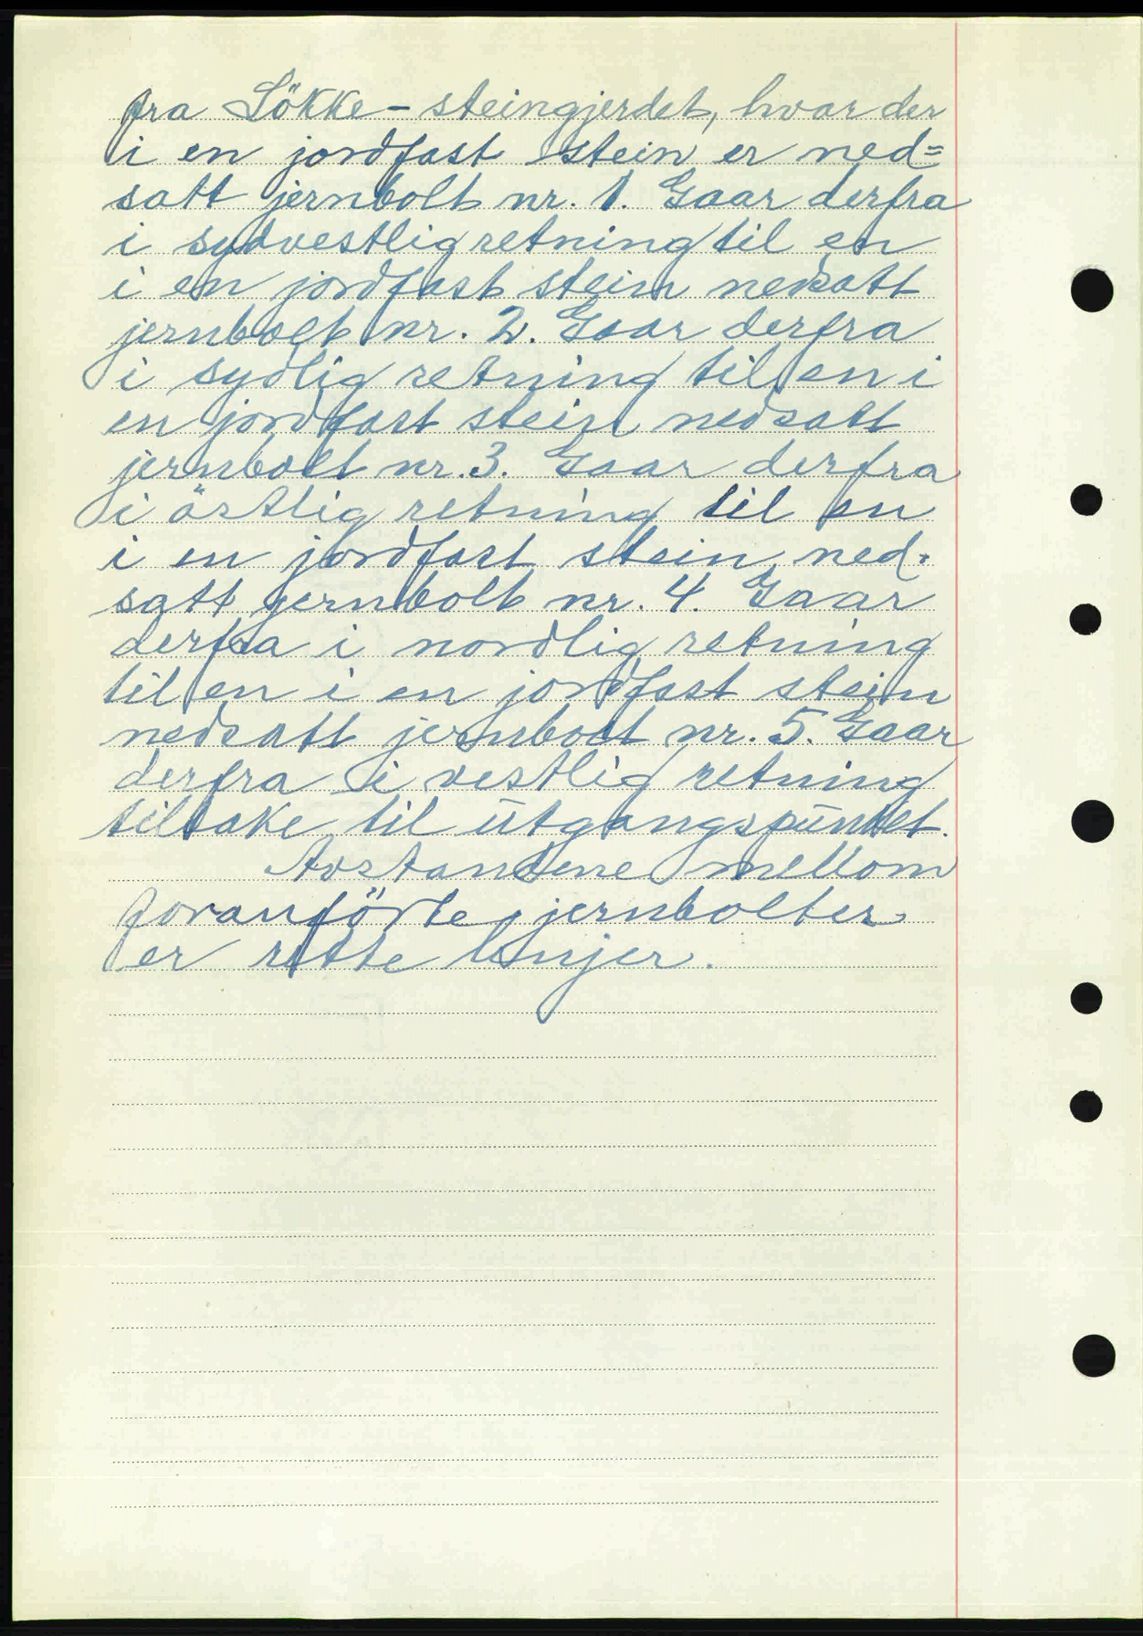 fra Lökke - steingjerdet, hvor der
i en jordfast stein er ned=
satt jernbolt nr. 1. Gaar derfra
i sydvestlig retning til en
i en jordfast stein nedsatt
jernbolt nr. 2. Gaar derfra
i sydlig retning til en i
en jordfast stein nedsatt
jernbolt nr. 3. Gaar derfra
i östlig retning til en
i en jordfast stein ned=
satt jernbolt nr. 4. Gaar
derfra i nordlig retning
til en i en jordfast stein
nedsatt jernbolt nr. 5. Gaar
derfra i vestlig retning
tilbake til ūtgangspūnktet.
Avstandene mellom
foranförte jernbolter
er rette linjer.